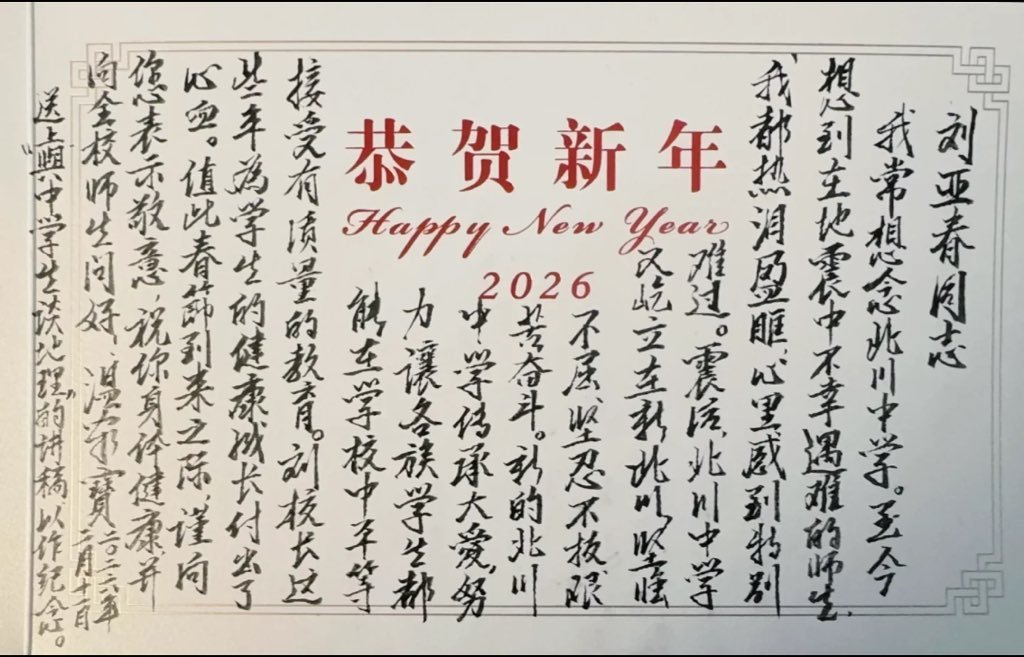 恭贺新年
Happy New Year
2026
刘亚春同志
我常想念北川中学。至今
想到在地震中不幸遇难的师生，
我都热泪盈眶，心里感到特别
难过。震后，北川中学
又屹立在新北川，坚强
不屈，坚忍不拔，艰
苦奋斗。新的北川
中学传承大爱，努
力讓各族学生都
能在学校中平等
接受有质量的教育。刘校长这
些年為学生的健康成长付出了
心血。值此春节到来之际，谨向
您表示敬意，祝你身体健康并
向全校师生问好。温家寶 二〇二六年
二月十一日
送上“與中学生谈地理”的讲稿以作纪念。